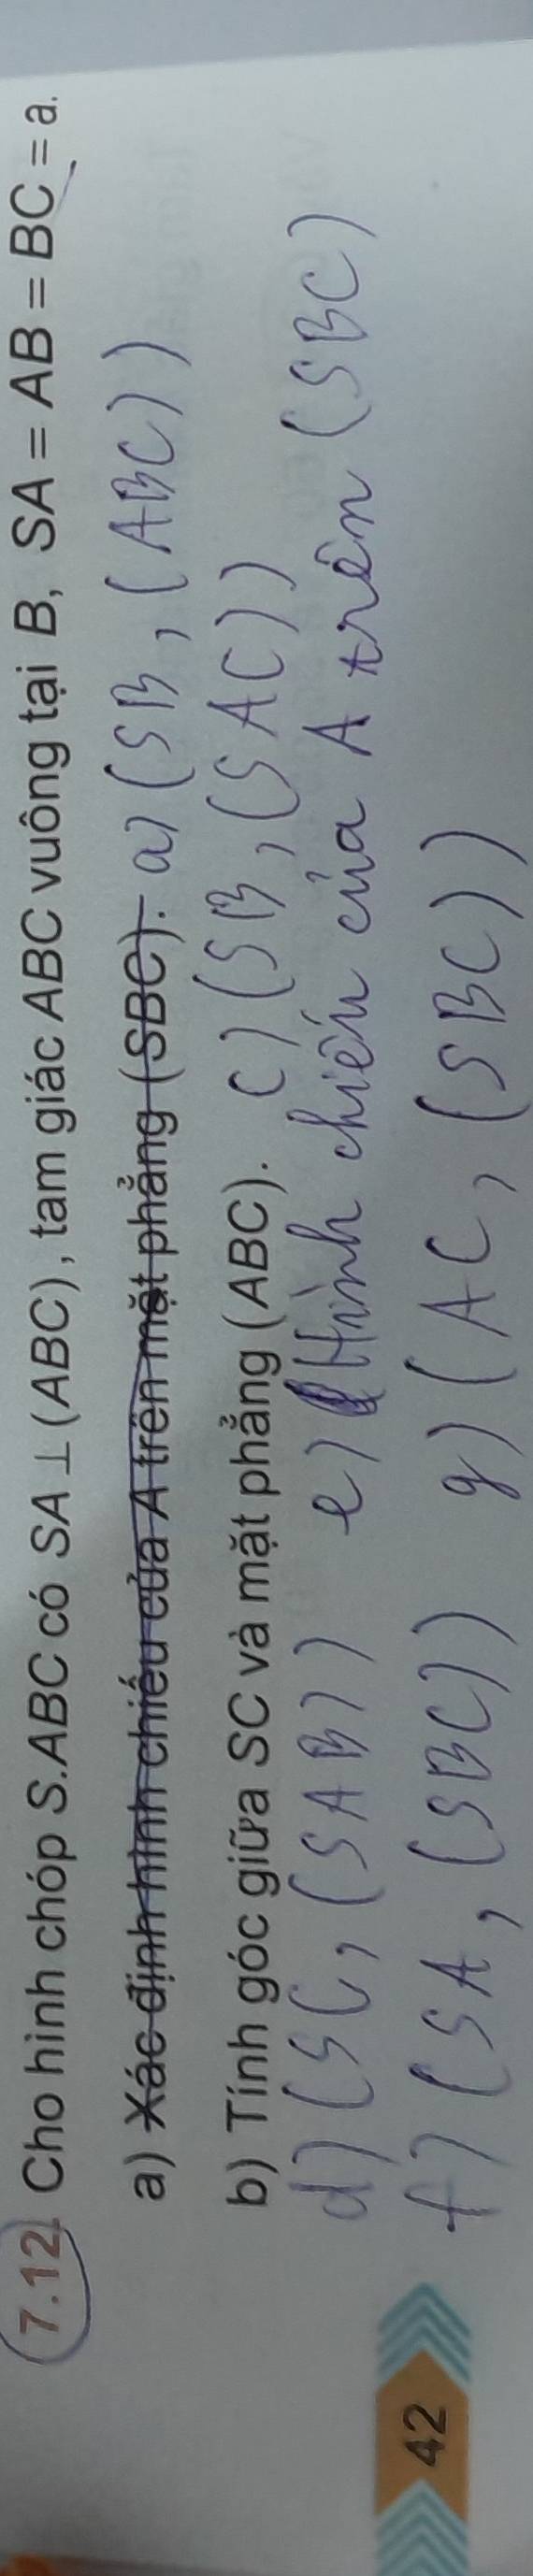 7.12. Cho hình chóp S.ABC có SA ⊥ (ABC), tam giác ABC vuông tại B, SA = AB = BC = a.
a) Xác định hình chiếu của A trên mặt phẳng (SBC). a) (SB, (ABC))
b) Tính góc giữa SC và mặt phẳng (ABC). c) (SB, (SAC))
d) (SC, (SAB)) e) Hình chiếu của A trên (SBC)
f) (SA, (SBC)) g) (AC, (SBC))
42